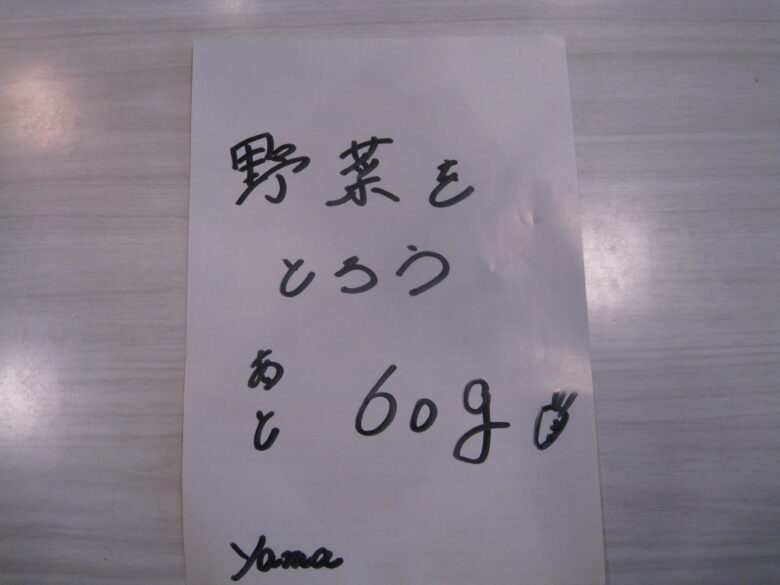 野菜を
とろう
あと 60g
Yama